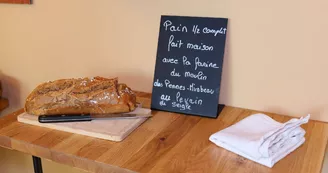 Pain 1/2 complet
fait maison
avec la farine
du moulin
des Pennes-Mirabeau
au levain
de seigle